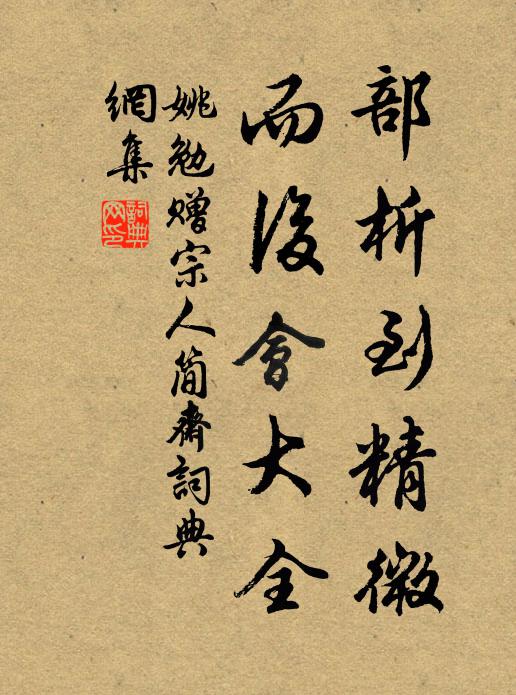 部析到精微
而後會大全
姚勉贈宗人簡齋詞典
網集
詞典網印